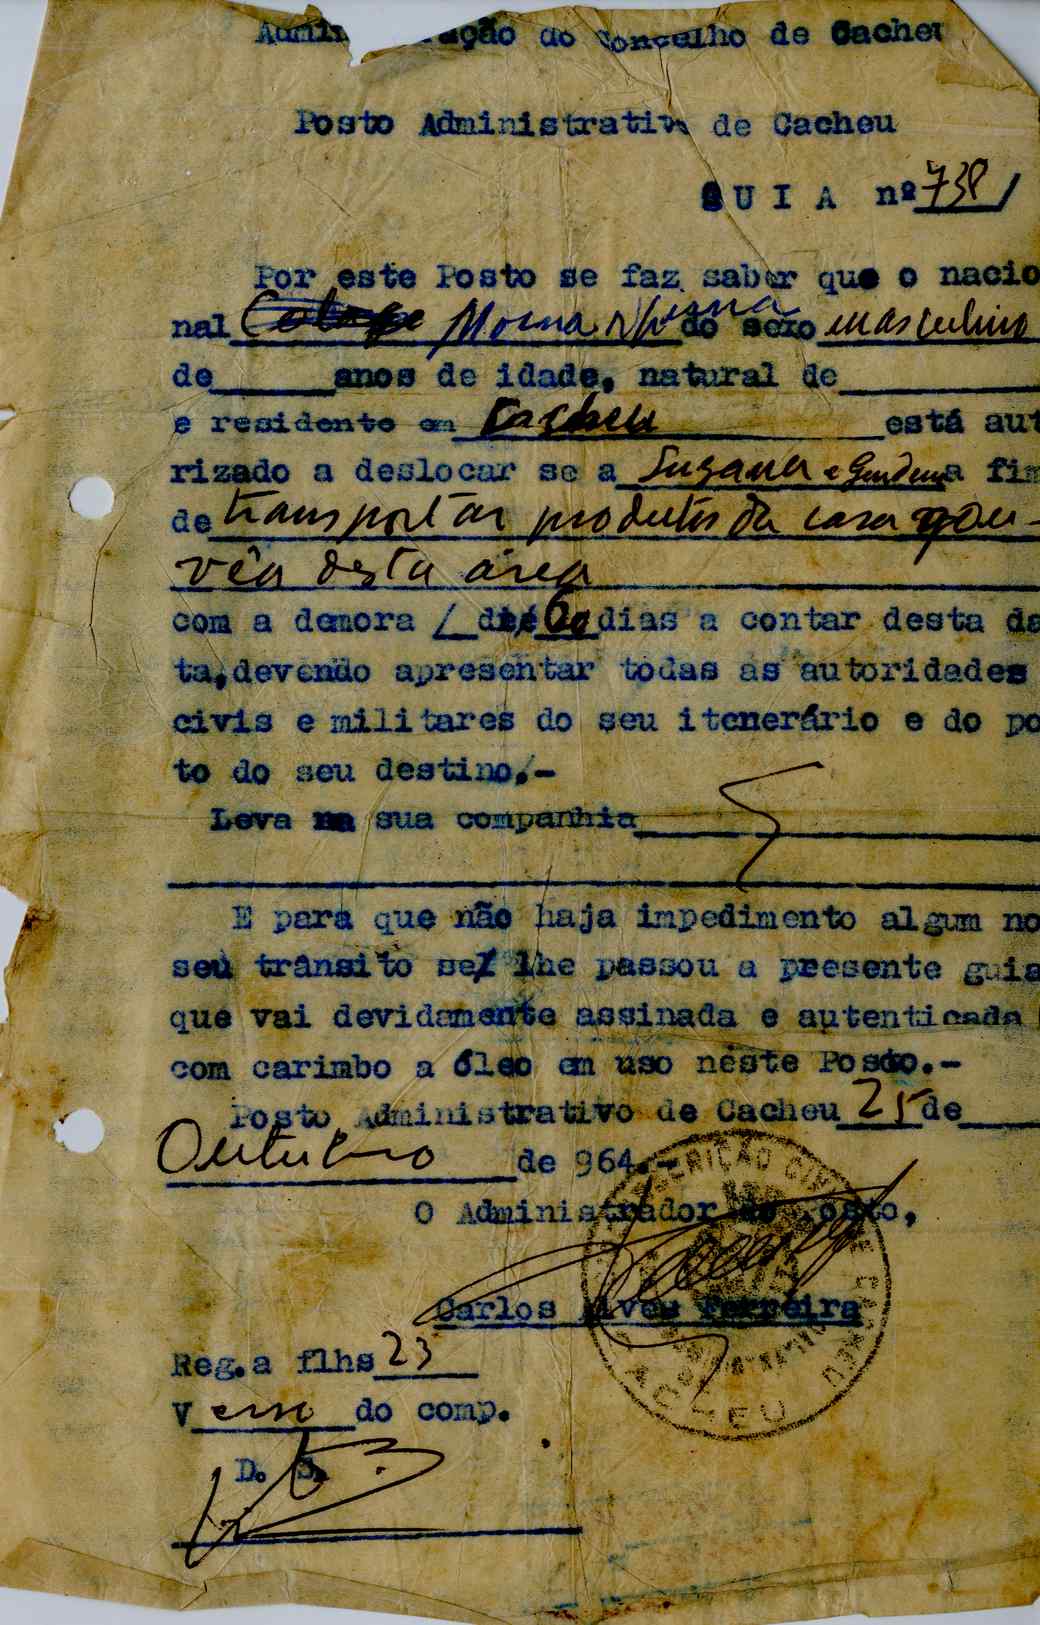 Administração do Concelho de Cacheu
Posto Administrativo de Cacheu
GUIA nº 738/
Por este Posto se faz saber que o nacio
nal do sexo masculino
de anos de idade, natural de
e residente em Cacheu está aut
rizado a deslocar se a Suzana e a fim
de transportar produtos da casa gou-
vêa desta área
com a demora / de 60 dias a contar desta da
ta, devendo apresentar todas as autoridades
civis e militares do seu itenerário e do po
to do seu destino.-
Leva na sua companhia
E para que não haja impedimento algum no
seu trânsito se/ lhe passou a presente guia
que vai devidamente assinada e autenticada
com carimbo a óleo em uso nêste Posto.-
Posto Administrativo de Cacheu 25 de
Outubro de 964.-
O Administrador do Posto,
Carlos Alves Ferreira
Reg. a flhs 23
Verso do comp.
D. S.
CACHEU